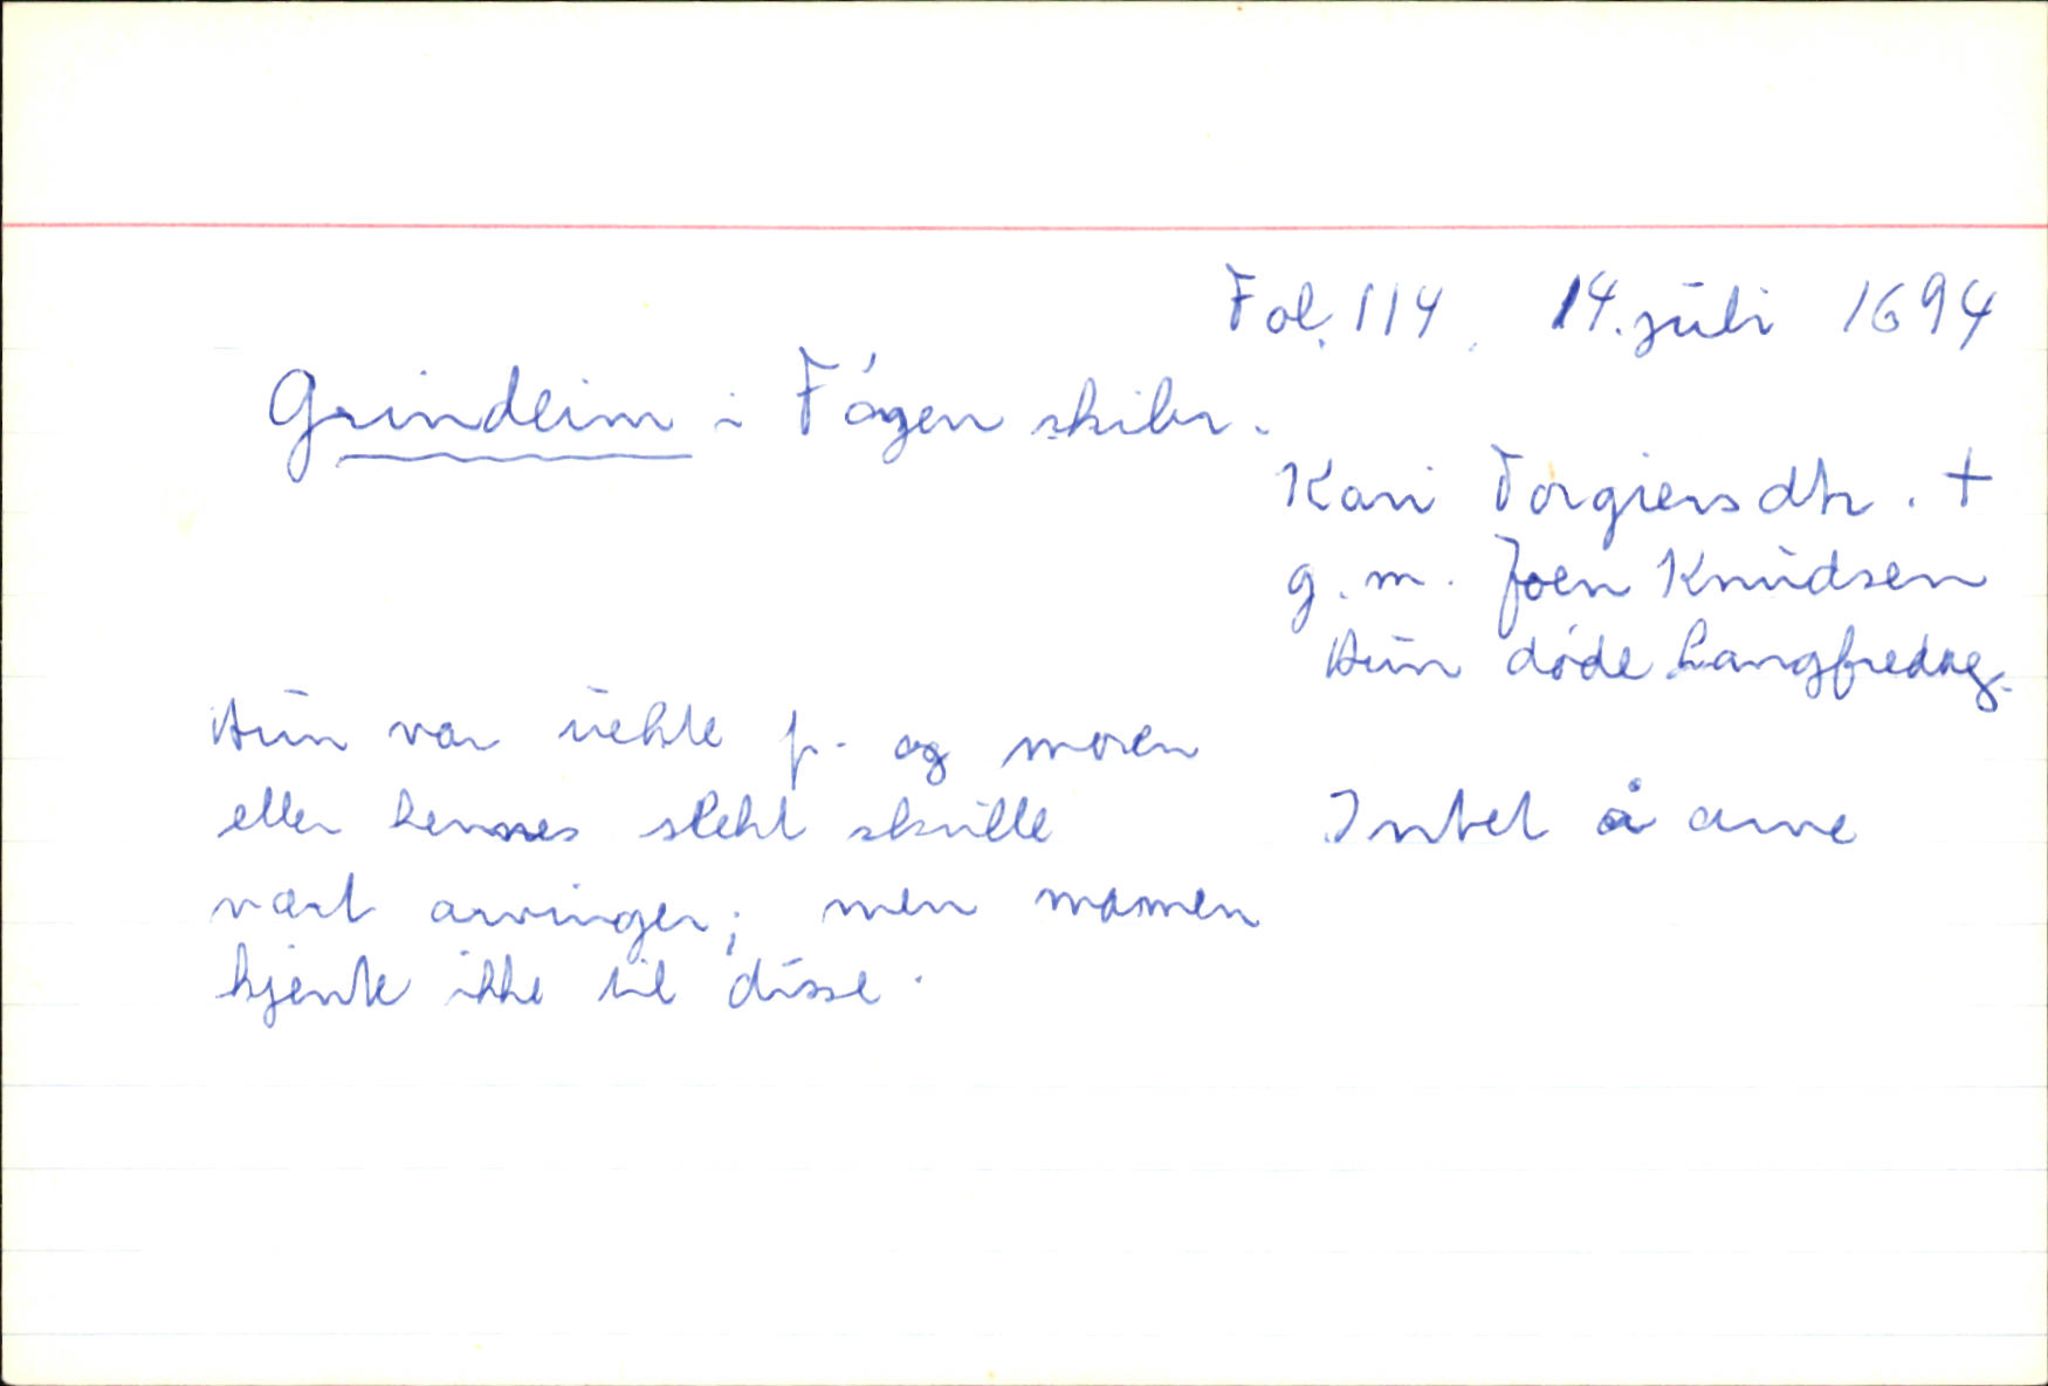 Fol. 114. 14. juli 1694
Grindeim i Fágen skibr.
Kari Torgiersdtr. +
g. m. Joen Knudsen
Hun døde Langfredag.
Hun var uekte f. og moren
eller hennes slekt skulle
vært arvinger; men mannen
kjente ikke til disse.
Intet å arve